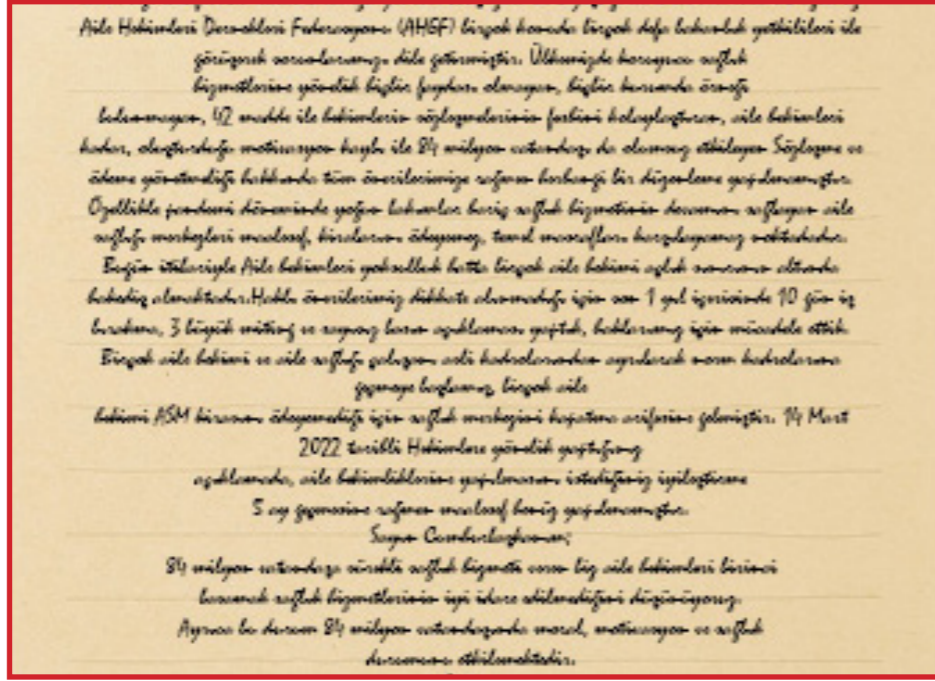 Aile Hekimleri Dernekleri Federasyonu (AHEF) birçok konuda birçok defa bakanlık yetkilileri ile
görüşerek sorunlarımızı dile getirmiştir. Ülkemizde koruyucu sağlık
hizmetlerine yönelik hiçbir faydası olmayan, hiçbir kurumda örneği
bulunmayan, 42 madde ile hekimlerin sözleşmelerinin feshini kolaylaştıran, aile hekimleri
kadar, oluşturduğu motivasyon kaybı ile 84 milyon vatandaşı da olumsuz etkileyen Sözleşme ve
ödeme yönetmeliği hakkında tüm önerilerimize rağmen herhangi bir düzenleme yapılmamıştır.
Özellikle pandemi döneminde yoğun bakımlar hariç sağlık hizmetinin devamını sağlayan aile
sağlığı merkezleri maalesef, kiralarını ödeyemez, temel masrafları karşılayamaz noktadadır.
Bugün itibariyle Aile hekimleri yoksulluk hatta birçok aile hekimi açlık sınırının altında
hakediş almaktadır.Haklı önerilerimiz dikkate alınmadığı için son 1 yıl içerisinde 10 gün iş
bırakma, 3 büyük miting ve sayısız basın açıklaması yaptık, haklarımız için mücadele ettik.
Birçok aile hekimi ve aile sağlığı çalışanı asli kadrolarından ayrılarak norm kadrolarına
geçmeye başlamış, birçok aile
hekimi ASM kirasını ödeyemediği için sağlık merkezini kapatma arifesine gelmiştir. 14 Mart
2022 tarihli Hekimlere yönelik yaptığınız
açıklamada, aile hekimliklerine yapılmasını istediğiniz iyileştirme
5 ay geçmesine rağmen maalesef henüz yapılmamıştır.
Sayın Cumhurbaşkanım;
84 milyon vatandaşa sürekli sağlık hizmeti veren biz aile hekimleri birinci
basamak sağlık hizmetlerinin iyi idare edilmediğini düşünüyoruz.
Ayrıca bu durum 84 milyon vatandaşında moral, motivasyon ve sağlık
durumunu etkilemektedir.